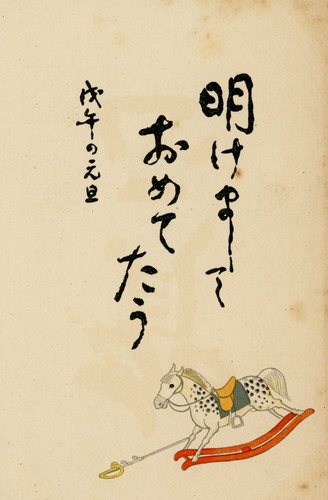 明けまして
おめて
たう
戊午の元旦